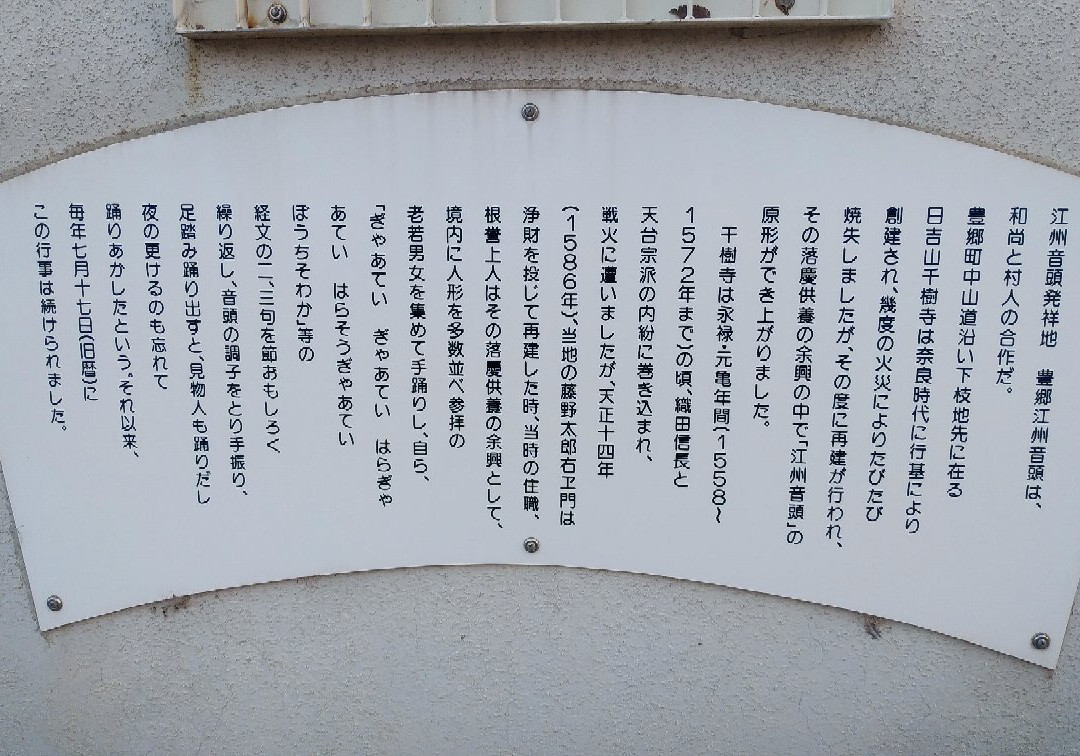 江州音頭発祥地　豊郷江州音頭は、
和尚と村人の合作だ。
豊郷町中山道沿い下枝地先に在る
日吉山千樹寺は奈良時代に行基により
創建され、幾度の火災によりたびたび
焼失しましたが、その度に再建が行われ、
その落慶供養の余興の中で「江州音頭」の
原形ができ上がりました。
千樹寺は永禄・元亀年間(1558〜
1572年まで)の頃、織田信長と
天台宗派の内紛に巻き込まれ、
戦火に遭いましたが、天正十四年
(1586年)、当地の藤野太郎右ヱ門は
浄財を投じて再建した時、当時の住職、
根誉上人はその落慶供養の余興として、
境内に人形を多数並べ参拝の
老若男女を集めて手踊りし、自ら、
「ぎゃあてい　ぎゃあてい　はらぎゃ
あてい　はらそうぎゃあてい
ぼうちそわか」等の
経文の二、三句を節おもしろく
繰り返し、音頭の調子をとり手振り、
足踏み踊り出すと、見物人も踊りだし
夜の更けるのも忘れて
踊りあかしたという。それ以来、
毎年七月十七日(旧暦)に
この行事は続けられました。